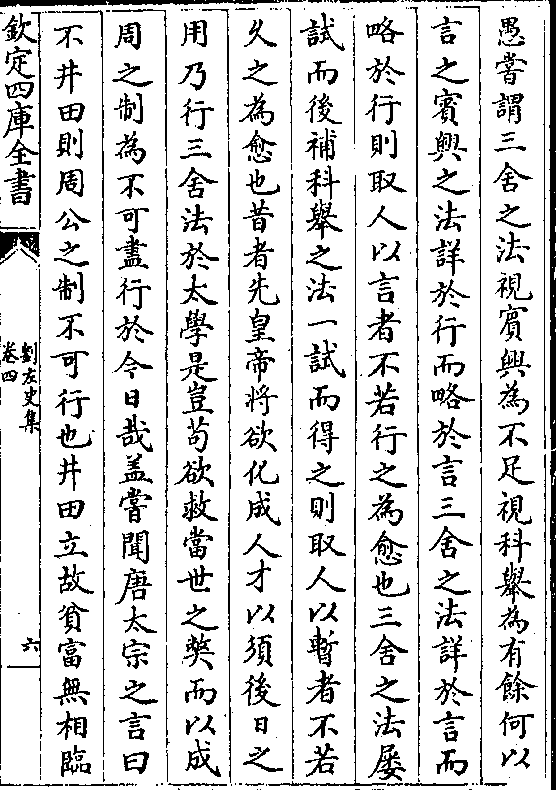 愚嘗謂三舍之法視賓興為不足視科舉為有餘何以
言之賓興之法詳於行而略於言三舍之法詳於言而
略於行則取人以言者不若行之為愈也三舍之法屡
試而後補科舉之法一試而得之則取人以暫者不若
久之為愈也昔者先皇帝將欲化成人才以須後日之
用乃行三舍法於太學是豈苟欲救當世之弊而以成
周之制為不可盡行於今日哉盖嘗聞唐太宗之言曰
不井田則周公之制不可行也井田立故貧富無相臨
欽定四庫全書
劉左史集
卷四
六